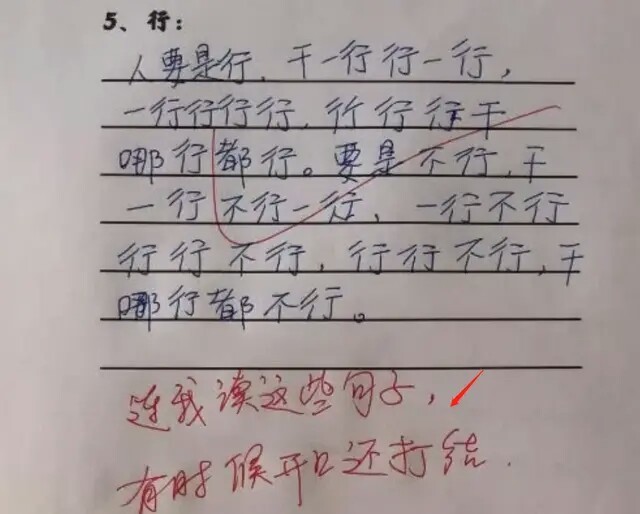 5、行：
人要是行，干一行行一行，
一行行行行，行行行干
哪行都行。要是不行，干
一行不行一行，一行不行
行行不行，行行不行，干
哪行都不行。
连我读这些句子，
有时候开口还打结.